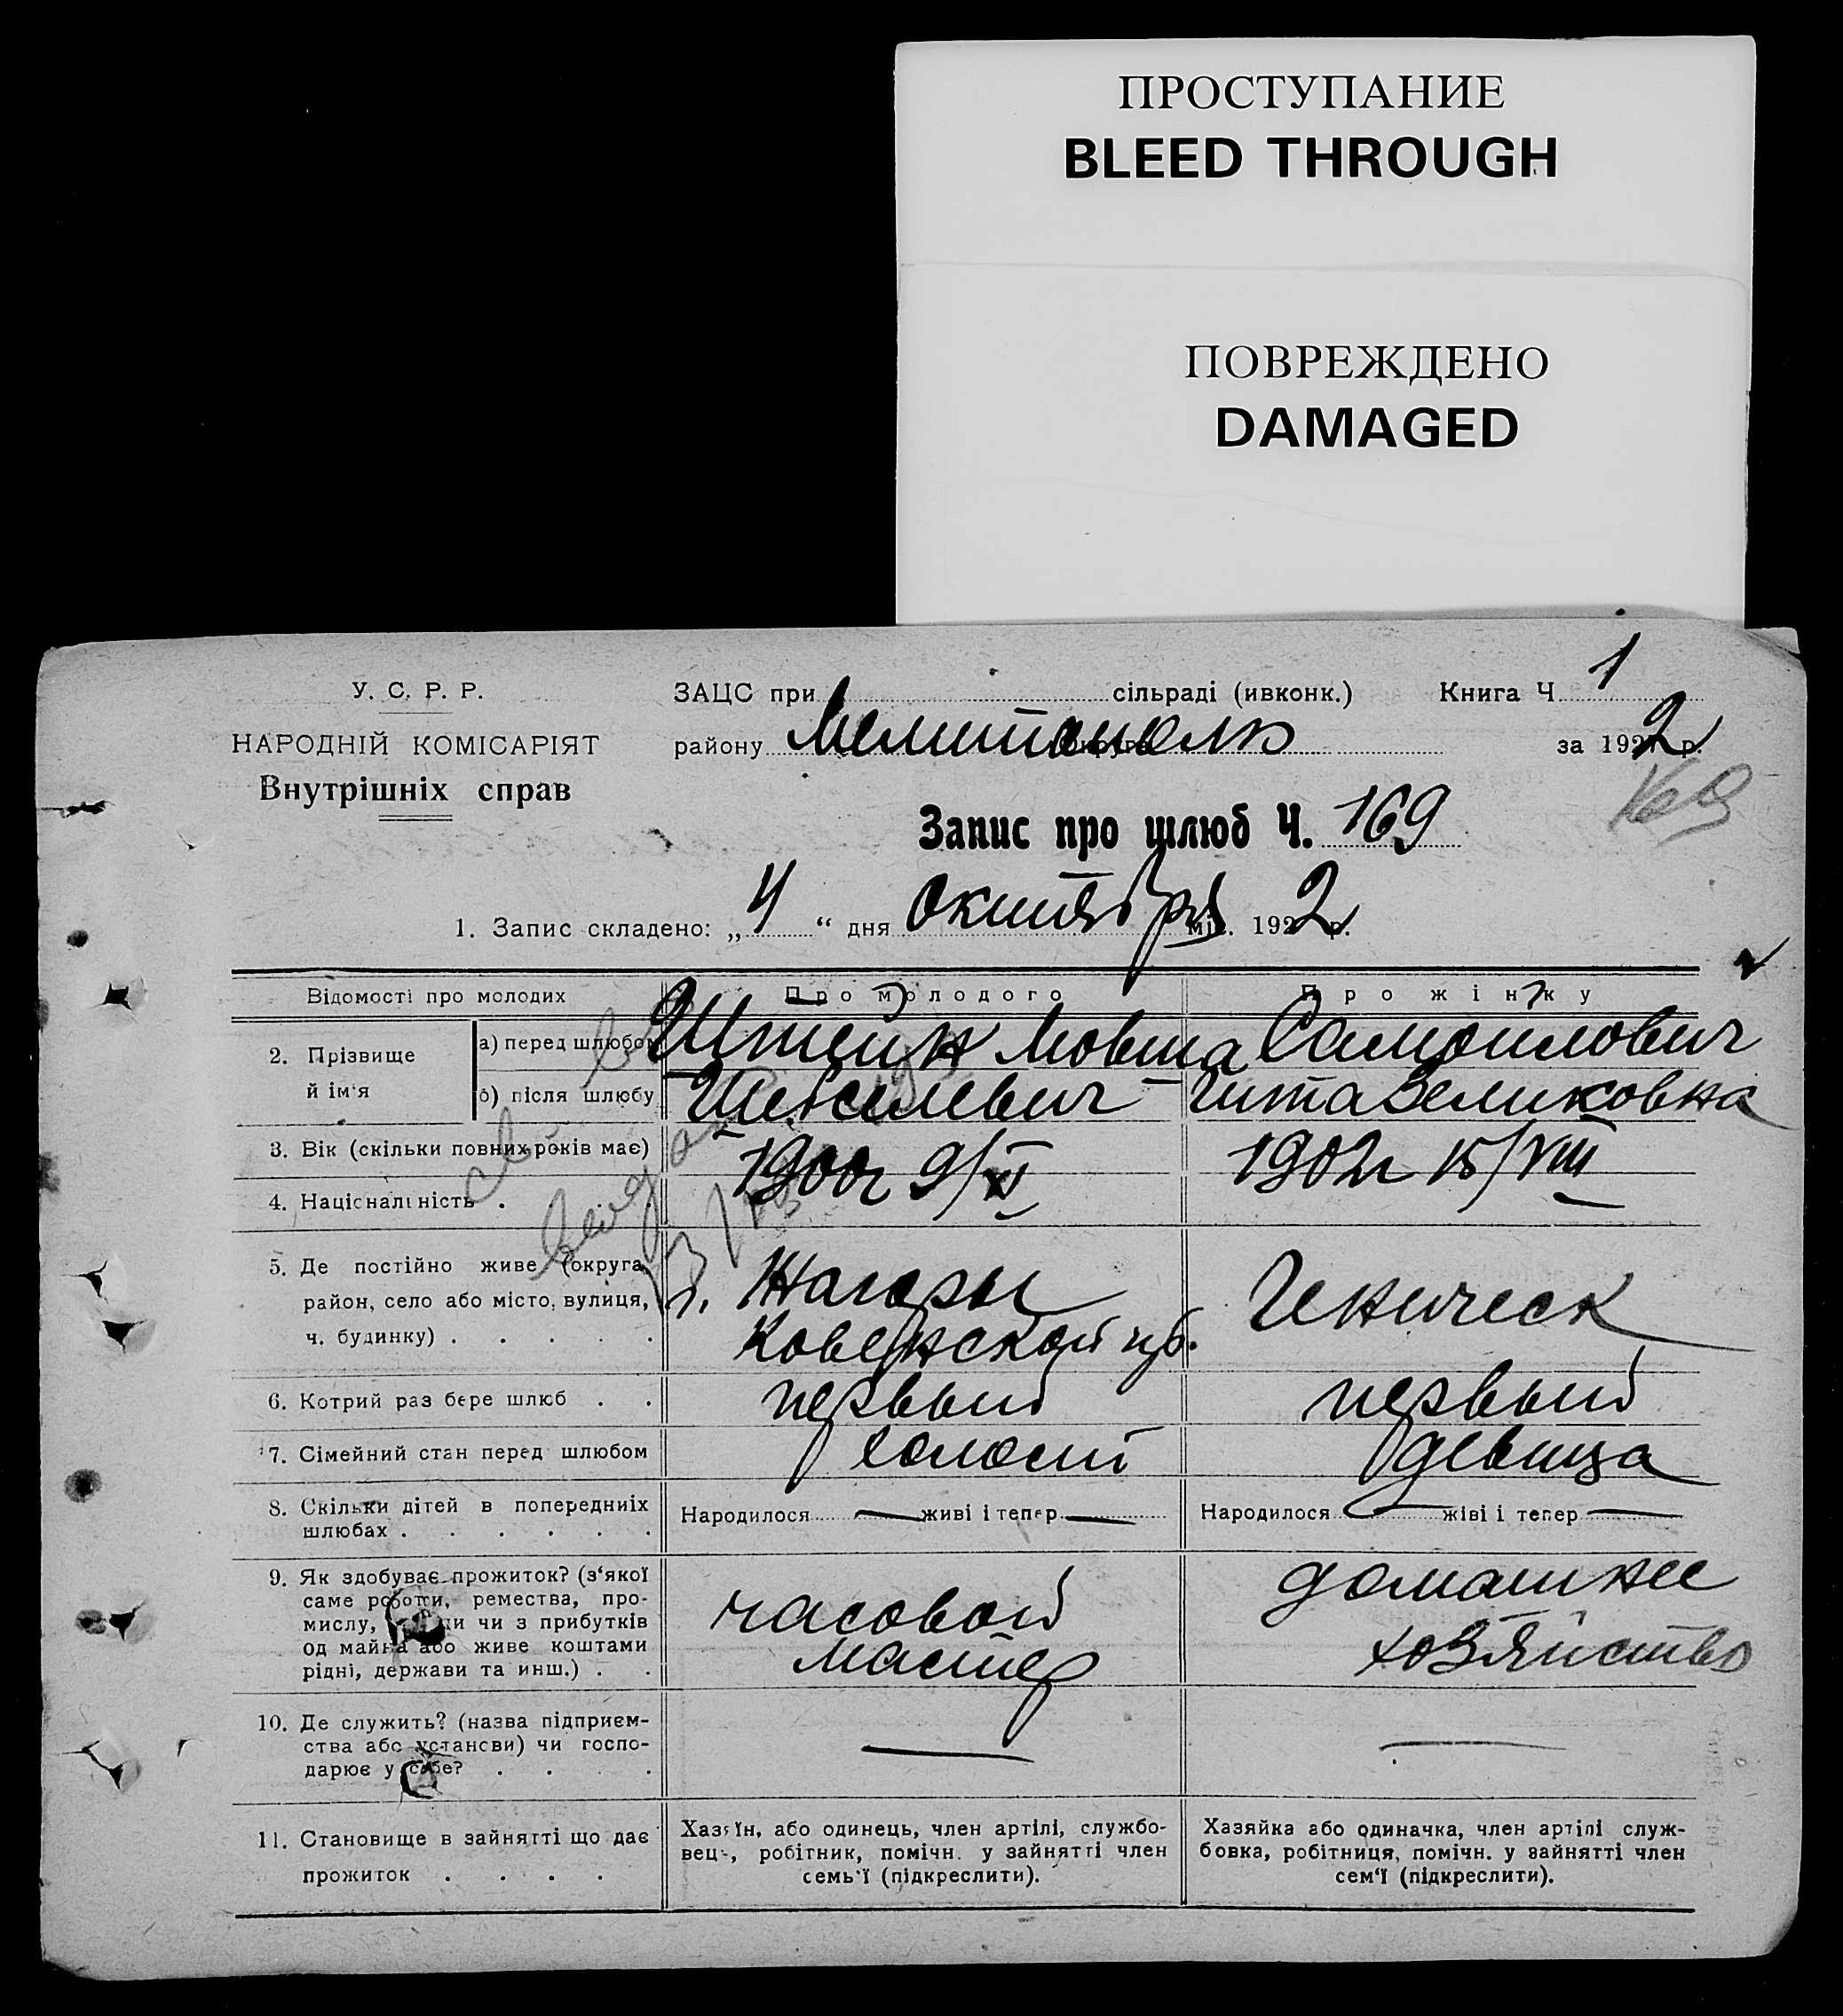 ПРОСТУПАНИЕ
BLEED THROUGH
ПОВРЕЖДЕНО
DAMAGED
У. С. Р. Р.
НАРОДНІЙ КОМІСАРІЯТ
Внутрішніх справ
ЗАЦС при сільраді (ивконк.) Книга Ч 1
району Мелитополь за 1922 р.
Запис про шлюб Ч. 169
1. Запис складено: „4“ дня Октября міс. 1922 р.
Відомості про молодих
Про молодого
Про жінку
2. Прізвище й ім'я
а) перед шлюбом
б) після шлюбу
Штейн Мовша
Шевелевич
Самойлович
Гита Зеликовна
3. Вік (скільки повних років має)
1900 г 9/XI
1902 г 15/VIII
4. Національність .
5. Де постійно живе (округа,
район, село або місто, вулиця,
ч. будинку) . . . . .
Жагоры
Ковенской губ.
Геническ
6. Котрий раз бере шлюб . .
первый
первый
7. Сімейний стан перед шлюбом
холост
девица
8. Скільки дітей в попередниіх
шлюбах . . . . . .
Народилося — живі і тепер —
Народилося — жіві і тепер —
9. Як здобуває прожиток? (з'якої
саме роботи, ремества, про-
мислу, чи з прибутків
од майна або живе коштами
рідні, держави та инш.) . .
часовой
мастер
домашнее
хозяйство
10. Де служить? (назва підприєм-
ства або установи) чи госпо-
дарює у себе? . . . .
—
—
11. Становище в зайнятті що дає
прожиток . . . .
Хазяїн, або одинець, член артілі, службо-
вець, робітник, помічн. у зайнятті член
семь'ї (підкреслити).
Хазяйка або одиначка, член артілі служ-
бовка, робітниця, помічн. у зайнятті член
сем'ї (підкреслити).